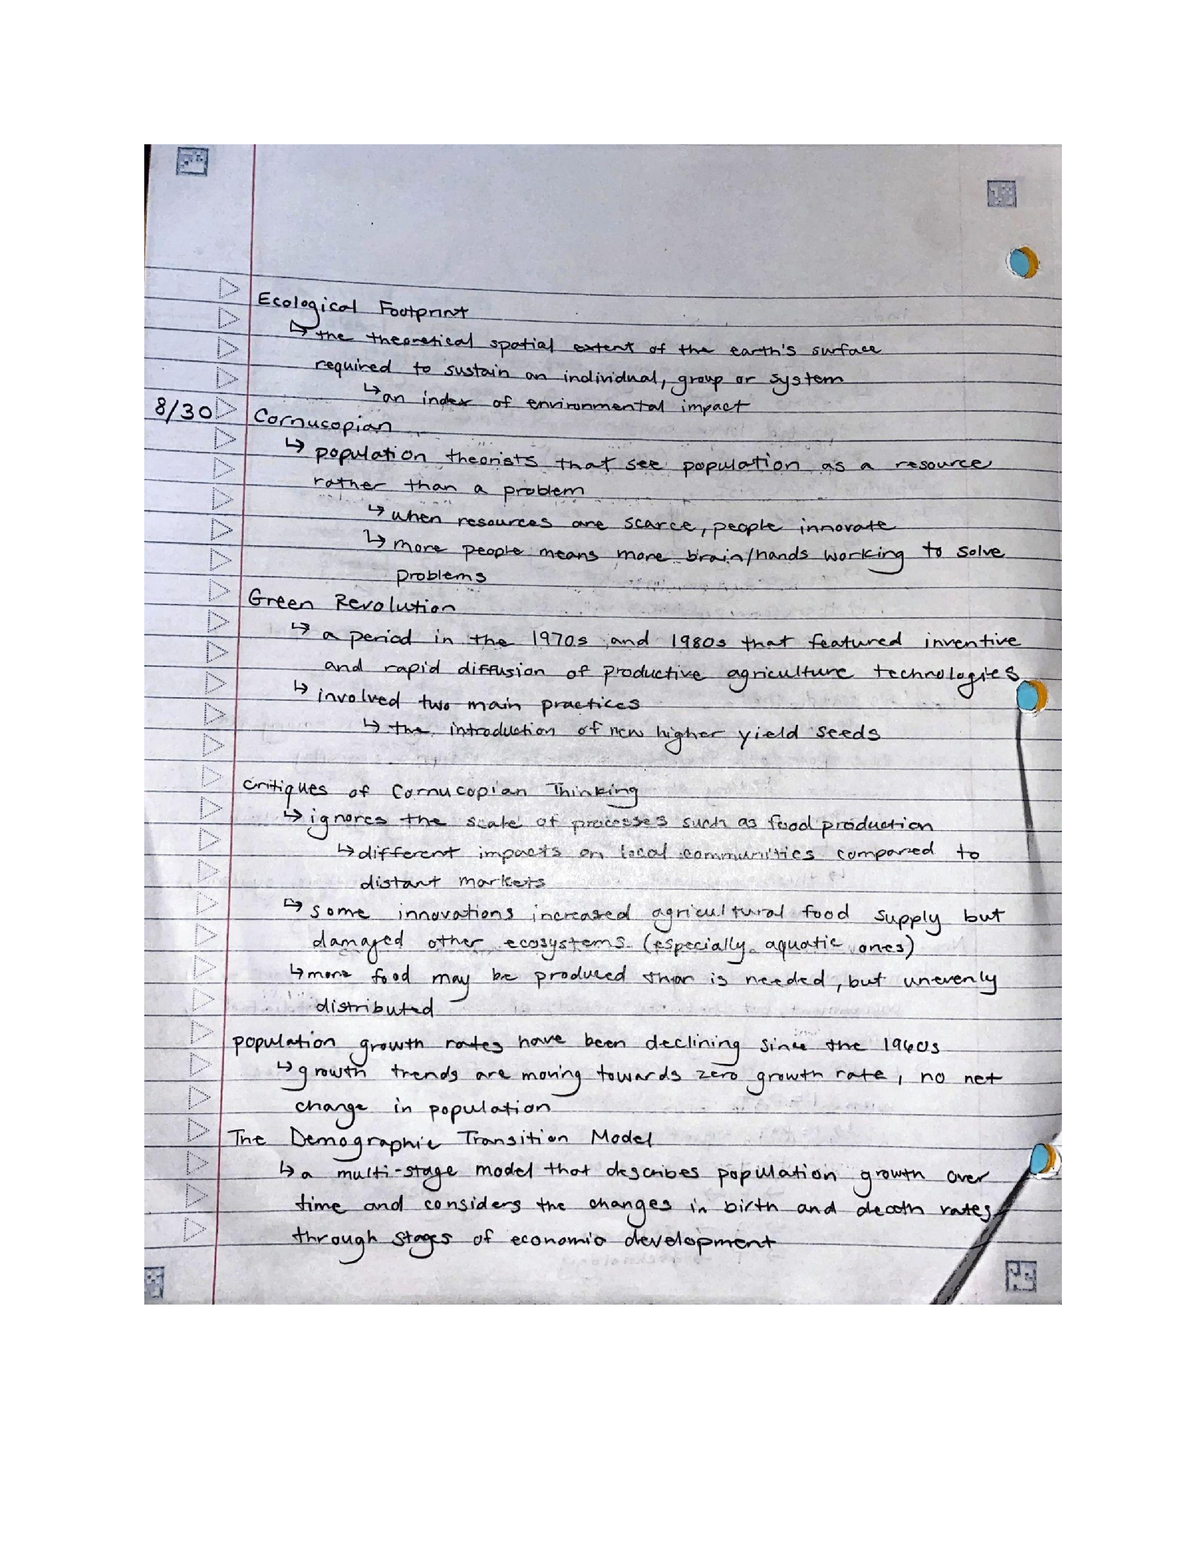 Ecological Footprint
↳ the theoretical spatial extent of the earth's surface
required to sustain an individual, group or system
↳ an index of environmental impact
8/30 Cornucopian
↳ population theorists that see population as a resource
rather than a problem
↳ when resources are scarce, people innovate
↳ more people means more brain/hands working to solve
problems
Green Revolution
↳ a period in the 1970s and 1980s that featured inventive
and rapid diffusion of productive agriculture technologies
↳ involved two main practices
↳ the introduction of new higher yield seeds
Critiques of Cornucopian Thinking
↳ ignores the scale of processes such as food production
↳ different impacts on local communities compared to
distant markets
↳ some innovations increased agricultural food supply but
damaged other ecosystems (especially aquatic ones)
↳ more food may be produced than is needed, but unevenly
distributed
population growth rates have been declining since the 1960s
↳ growth trends are moving towards zero growth rate, no net
change in population
The Demographic Transition Model
↳ a multi-stage model that describes population growth over
time and considers the changes in birth and death rates
through stages of economic development